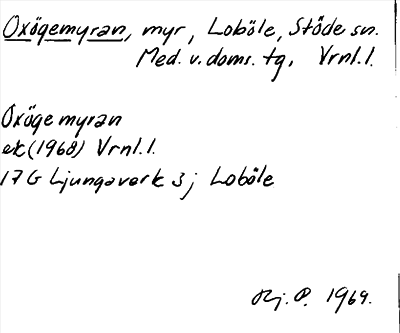 Oxögemyran, myr, Loböle, Stöde sn.
Med. v. doms. tg. Vrnl. l.
Oxögemyran
ek (1968) Vrnl. l.
17 G Ljungaverk 3 j Loböle
Rj. P. 1969.